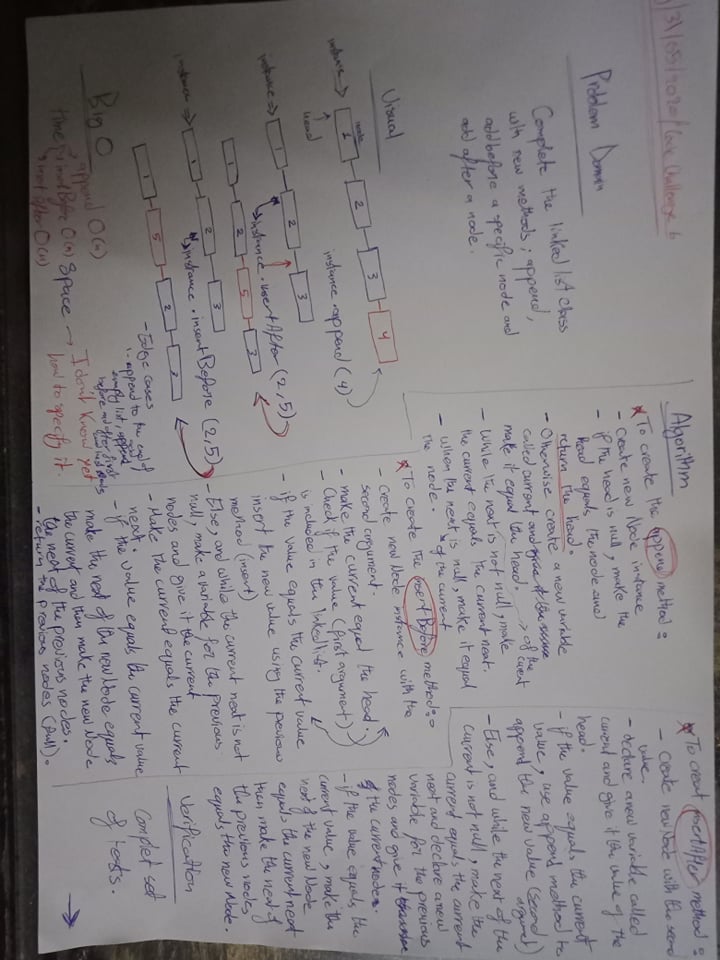 31/05/2020/Code Challenge 6
Problem Domain
Complete the linked list class
with new methods; append,
add before a specific node and
add after a node.
Visual
instance → 1 2 3 4
node
↑ head
instance.append(4)
instance ⇒ 1 2 3
instance.insertAfter(2,5)
1 2 5 3
instance ⇒ 1 2 3
instance.insertBefore(2,5)
1 5 2 3
- Edge cases
append to the end of
empty list, append
before and after first
Big O
append O(n)
time insertBefore O(n)
insertAfter O(n)
Space → I don't know yet
how to specify it.
Algorithm
* To create the append method:
- Create new Node instance
- if the head is null, make the
head equals the node and
return the head.
- Otherwise create a new variable
called current and
make it equal the head.
- While the next is not null, make → of the current
the current equals the current next.
- When the next is null, make it equal
the node. of the current
* To create the insertBefore method:
- Create new Node instance with the
second argument.
- make the current equal the head.
- Check if the value (first argument)
is included in the linked list.
- if the value equals the current value
insert the new value using the previous
method (insert)
- Else, and while the current next is not
null, make a variable for the previous
nodes and give it the current
- Make the current equals the current
next.
- if the value equals the current value
make the next of the new Node equals
the current and then make the new Node
the next of the previous nodes.
- return the previous nodes (full).
* To creat insertAfter method:
- Create new Node with the second
value.
- declare a new variable called
current and give it the value of the
head.
- if the value equals the current
value, use append method to
append the new value (second
argument)
- Else, and while the next of the
current is not null, make the
current equals the current
next and declare a new
variable for the previous
nodes and give it
the current node.
- if the value equals the
current value, make the
next of the new Node
equals the current next
then make the next of
the previous nodes
equals the new Node
Verification
Complet set
of tests.